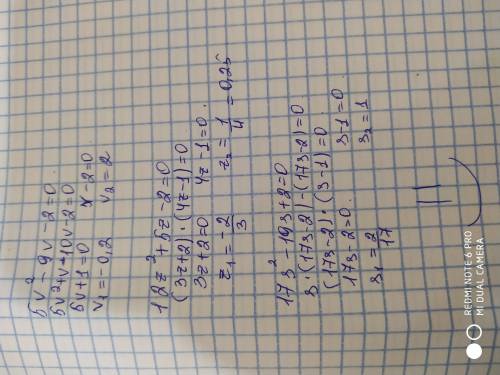 5v² - 9v - 2 = 0
5v² + v - 10v - 2 = 0
5v + 1 = 0 v - 2 = 0
v₁ = -0,2 v₂ = 2
12z² + 5z - 2 = 0
(3z+2) · (4z-1) = 0
3z + 2 = 0 4z - 1 = 0.
z₁ = -2/3 z₂ = 1/4 = 0,25
17з² - 19з + 2 = 0
з · (17з-2) - (17з-2) = 0
(17з-2) · (з-1) = 0
17з - 2 = 0. з - 1 = 0
з₁ = 2/17 з₂ = 1
REDMI NOTE 6 PRO
MI DUAL CAMERA